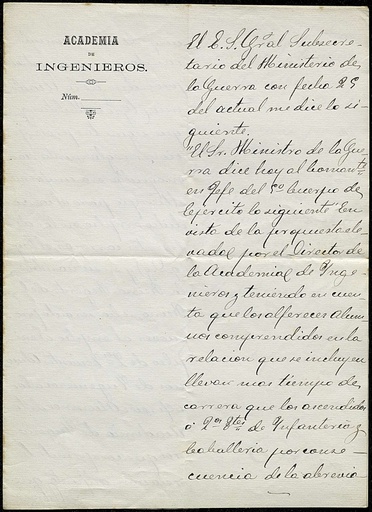 ACADEMIA
DE
INGENIEROS.
Núm.
El E. S. Gral Subsecre-
tario del Ministerio de
la Guerra con fecha 25
del actual me dice lo si-
guiente.
"El Sr. Ministro de la Gue
rra dice hoy al Comante
en Gefe del 5º Cuerpo de
Ejercito lo siguiente "En
vista de la propuesta ele-
vada por el Director de
la Academia de Inge-
nieros y teniendo en cuen
ta que los alfereces alum
nos comprendidos en la
relacion que se incluye
llevan mas tiempo de
carrera que los ascendidos
á 2os Ttes de Infanteria y
Caballeria por conse
cuencia de la abrevia